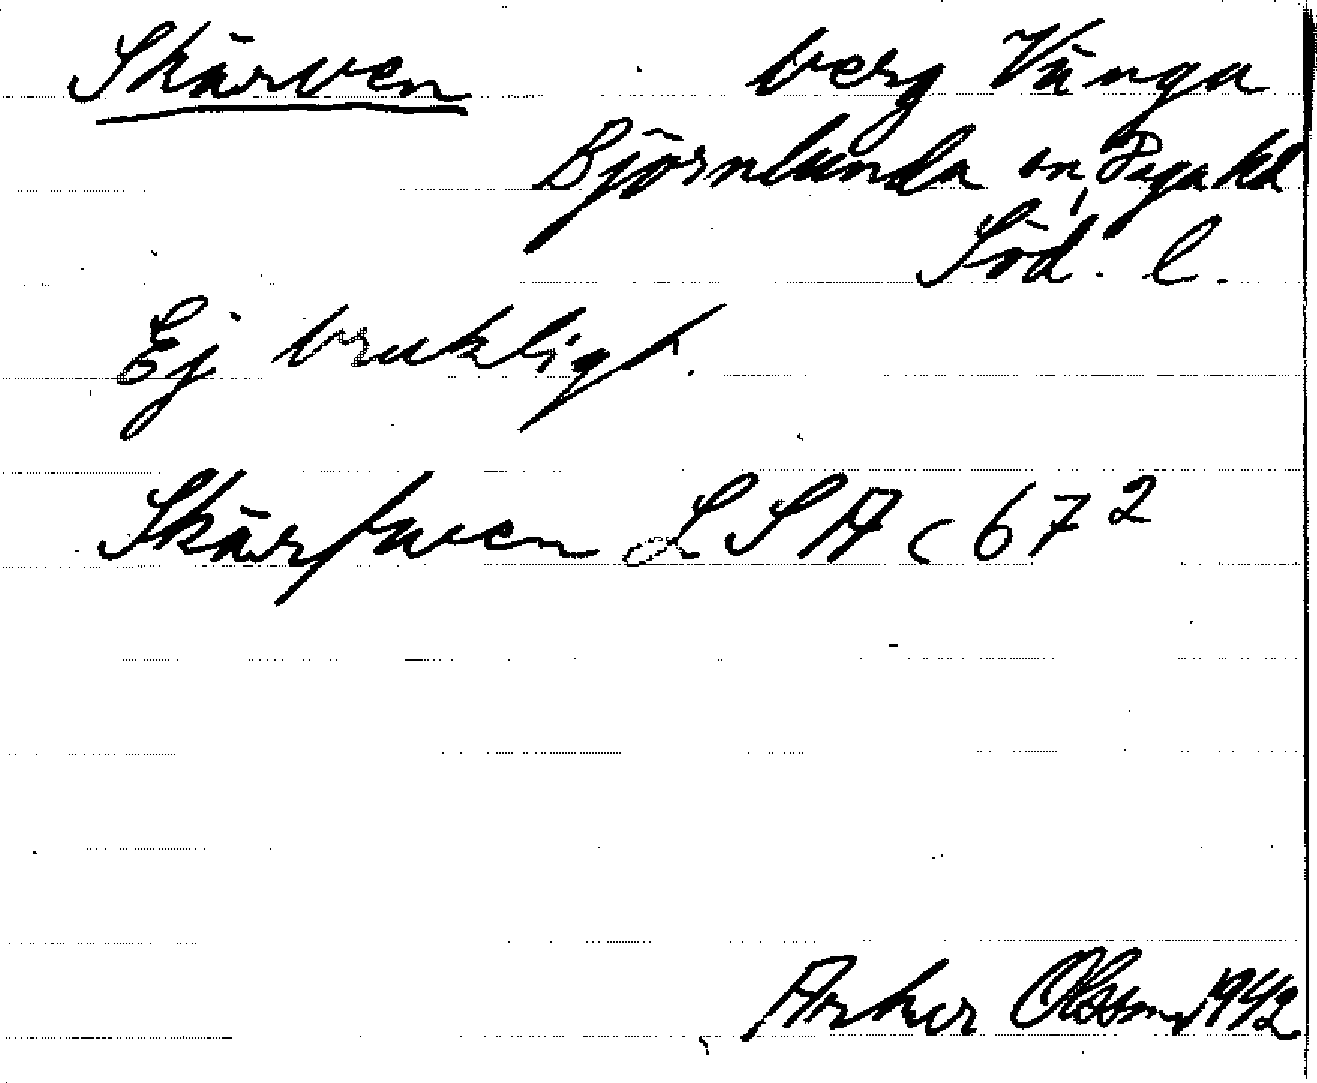 Skärven berg Vänga
Björnlunda sn, Daga hd
Söd. l.
Ej brukligt.
Skärfwen LSA C 67²
Olsson 1942